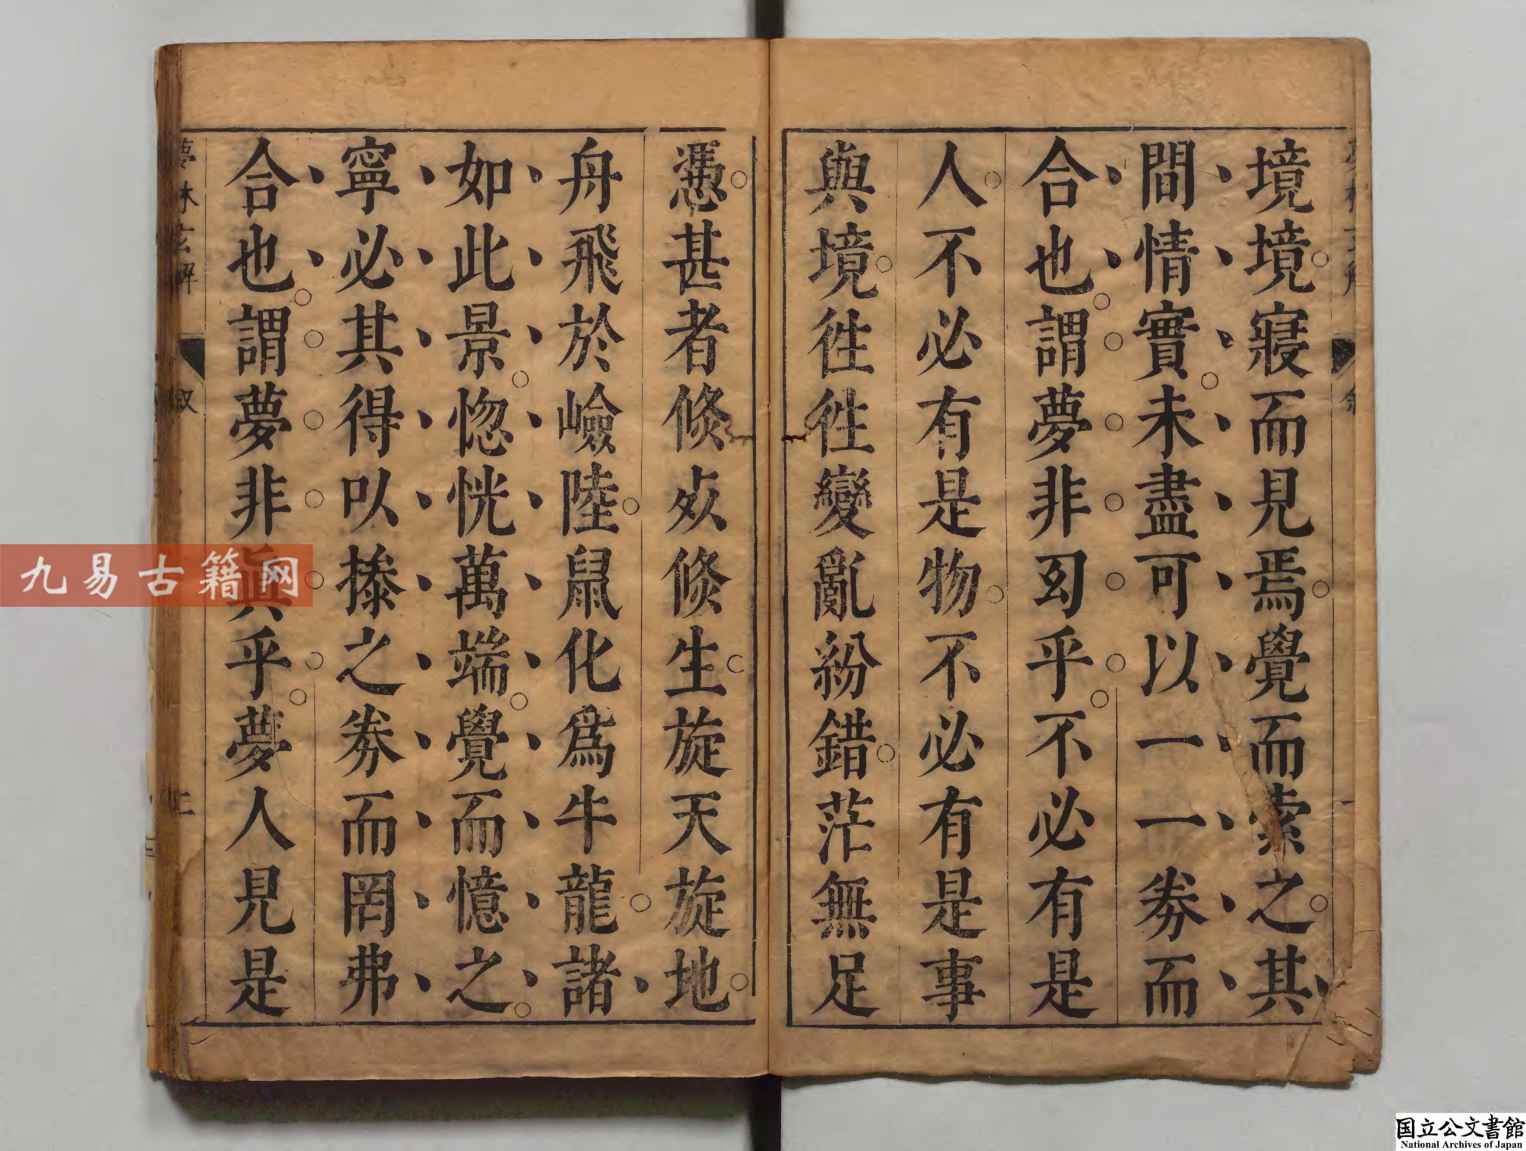 境境寢而見焉覺而索之其
間情實未盡可以一一券而
合也謂夢非幻乎不必有是
人不必有是物不必有是事
與境徃徃變亂紛錯茫無足
憑甚者倐㱁倐生旋天旋地
舟飛於嶮陸鼠化爲牛龍諸
如此景惚恍萬端覺而憶之
寧必其得以搽之券而罔弗
合也謂夢非眞乎夢人見是
夢林玄解
敘
二
九易古籍网
国立公文書館
National Archives of Japan